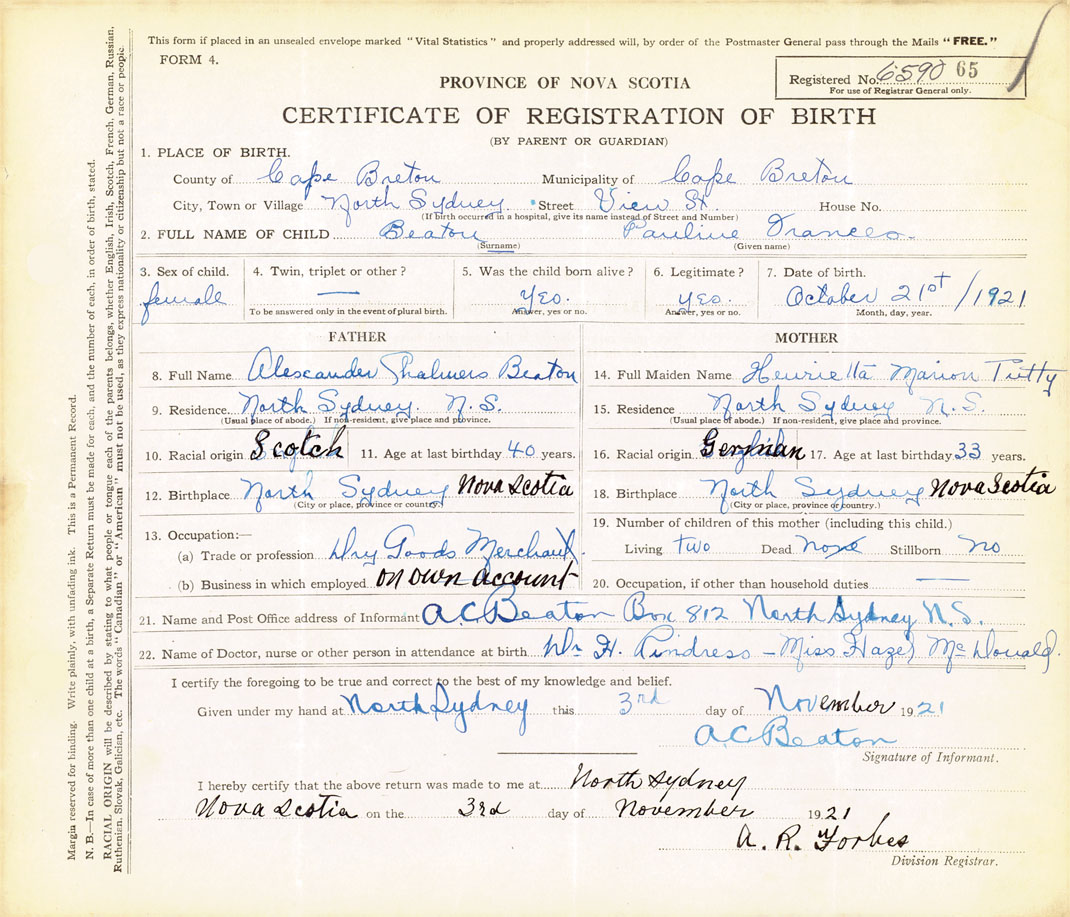 This form if placed in an unsealed envelope marked "Vital Statistics" and properly addressed will, by order of the Postmaster General pass through the Mails "FREE."
FORM 4.
PROVINCE OF NOVA SCOTIA
Registered No. 6590 65
For use of Registrar General only.
CERTIFICATE OF REGISTRATION OF BIRTH
(BY PARENT OR GUARDIAN)
1. PLACE OF BIRTH.
County of Cape Breton Municipality of Cape Breton
City, Town or Village North Sydney Street View St. House No.
(If birth occurred in a hospital, give its name instead of Street and Number)
2. FULL NAME OF CHILD Beaton Pauline Frances.
(Surname) (Given name)
3. Sex of child. 4. Twin, triplet or other? 5. Was the child born alive? 6. Legitimate? 7. Date of birth.
female — Yes. Yes. October 21st/1921
To be answered only in the event of plural birth. Answer, yes or no. Answer, yes or no. Month, day, year.
FATHER MOTHER
8. Full Name Alexander Chalmers Beaton 14. Full Maiden Name Henrietta Marion Tutty
9. Residence North Sydney. N.S. 15. Residence North Sydney N.S.
(Usual place of abode.) If non-resident, give place and province. (Usual place of abode.) If non-resident, give place and province.
10. Racial origin Scotch 11. Age at last birthday 40 years. 16. Racial origin 17. Age at last birthday 33 years.
12. Birthplace North Sydney Nova Scotia 18. Birthplace North Sydney Nova Scotia
(City or place, province or country.) (City or place, province or country.)
13. Occupation:— 19. Number of children of this mother (including this child.)
(a) Trade or profession Dry Goods Merchant Living two Dead none Stillborn no
(b) Business in which employed on own account 20. Occupation, if other than household duties —
21. Name and Post Office address of Informant A.C Beaton Box 812 North Sydney N.S.
22. Name of Doctor, nurse or other person in attendance at birth. Dr. H. – Miss Hazel McDonald.
I certify the foregoing to be true and correct to the best of my knowledge and belief.
Given under my hand at North Sydney this 3rd day of November 1921
A.C Beaton
Signature of Informant.
I hereby certify that the above return was made to me at North Sydney
Nova Scotia on the 3rd day of November 1921
A. R. Forbes
Division Registrar.
Margin reserved for binding. Write plainly, with unfading ink. This is a Permanent Record.
N. B.—In case of more than one child at a birth, a Separate Return must be made for each, and the number of each, in order of birth, stated.
RACIAL ORIGIN will be described by stating to what people or tongue each of the parents belongs, whether English, Irish, Scotch, French, German, Russian,
Ruthenian, Slovak, Galician, etc. The words "Canadian" or "American" must not be used, as they express nationality or citizenship but not a race or people.